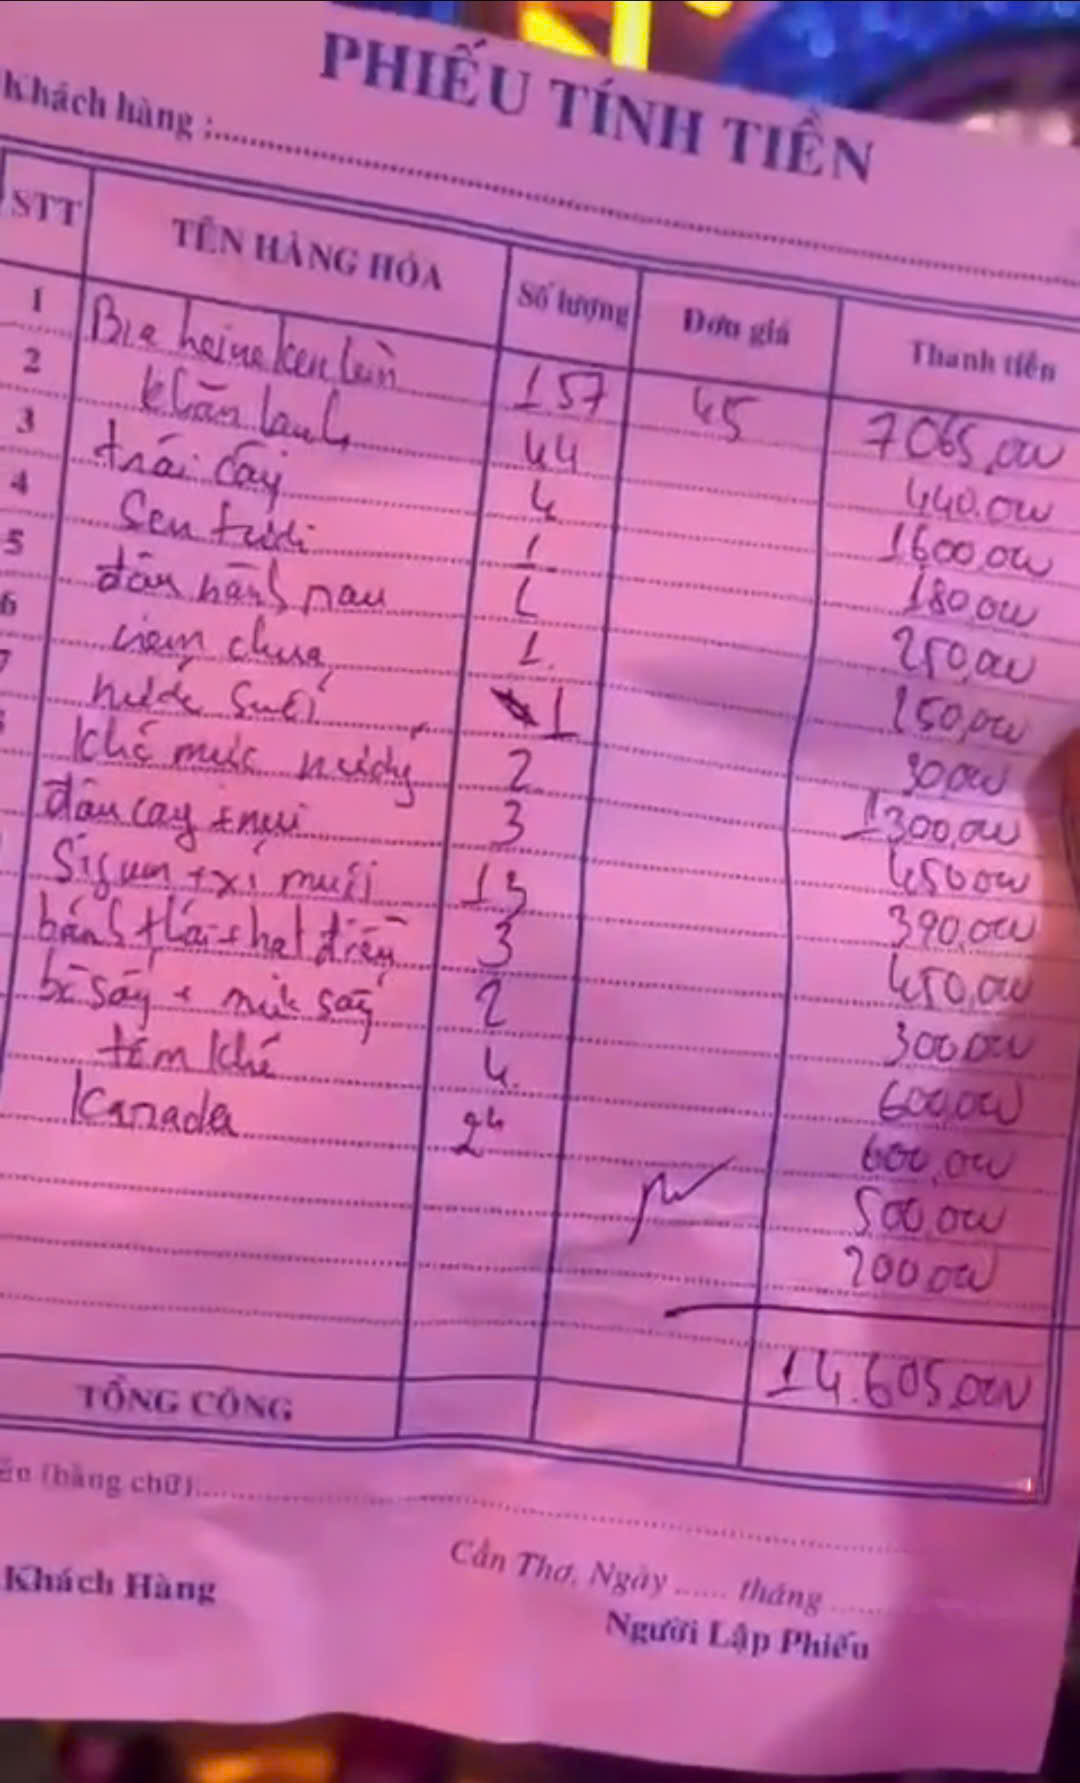 PHIẾU TÍNH TIỀN
Khách hàng :
STT TÊN HÀNG HÓA Số lượng Đơn giá Thanh tiền
1 Bia heineken lùn 157 45 7065,000
2 khăn lạnh 44 440.000
3 trái cây 4 1600,000
4 Sen tươi 1 180,000
5 đậu hành nau 1 250,000
6 chua 1 250,000
7 nước suối 1 30,000
khô mực nướng 2 1300,000
đậu cay + nui 3 450,000
+ xí muối 13 390,000
bánh thái + hạt điều 3 450,000
bò sấy + mít sấy 2 300,000
tôm khô 4 600,000
Kanada 24 600,000
500,000
200,000
14.605,000
TỔNG CỘNG
(bằng chữ)
Cần Thơ, Ngày ...... tháng
Khách Hàng
Người Lập Phiếu